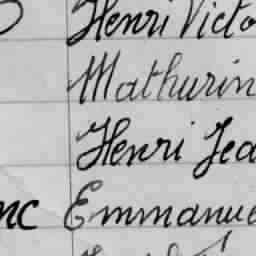 Henri Victo
Mathurin
Henri Jea
nc Emmanue